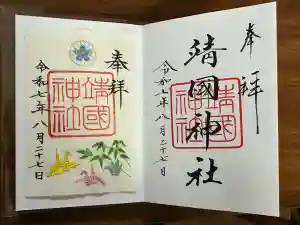 奉拝
靖國
神社
令和七年八月二十七日
奉拝
靖國神社
靖國
神社
令和七年八月二十七日